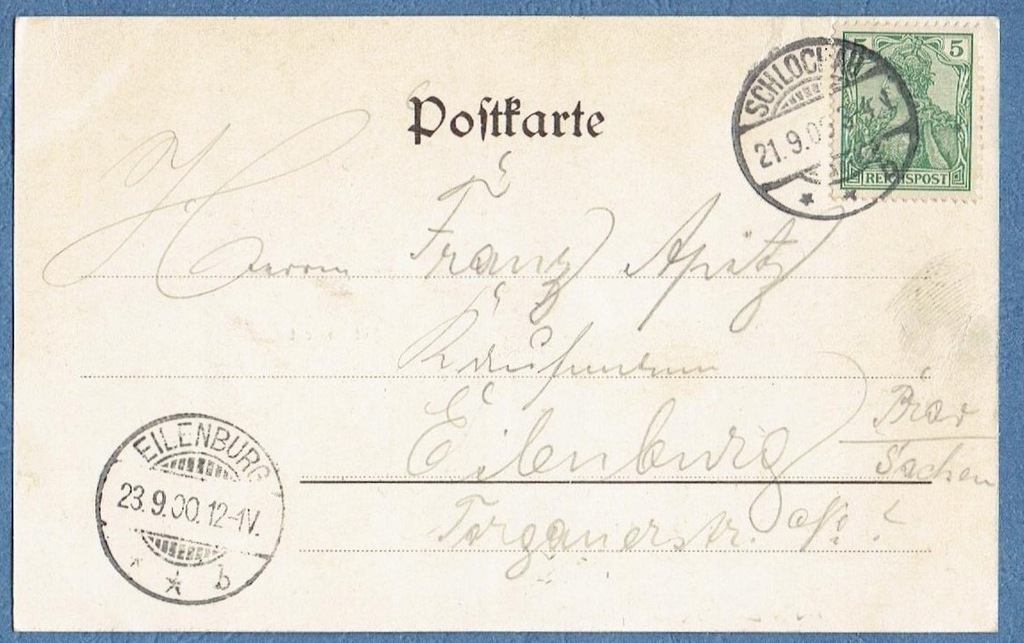 Postkarte
SCHLOCHAU
21.9.00
5 5
REICHSPOST
Herrn Franz Apitz
Kaufmann
Eilenburg
Prov
Sachsen
Torgauerstr.
EILENBURG
23.9.00.12-1V.
* * b